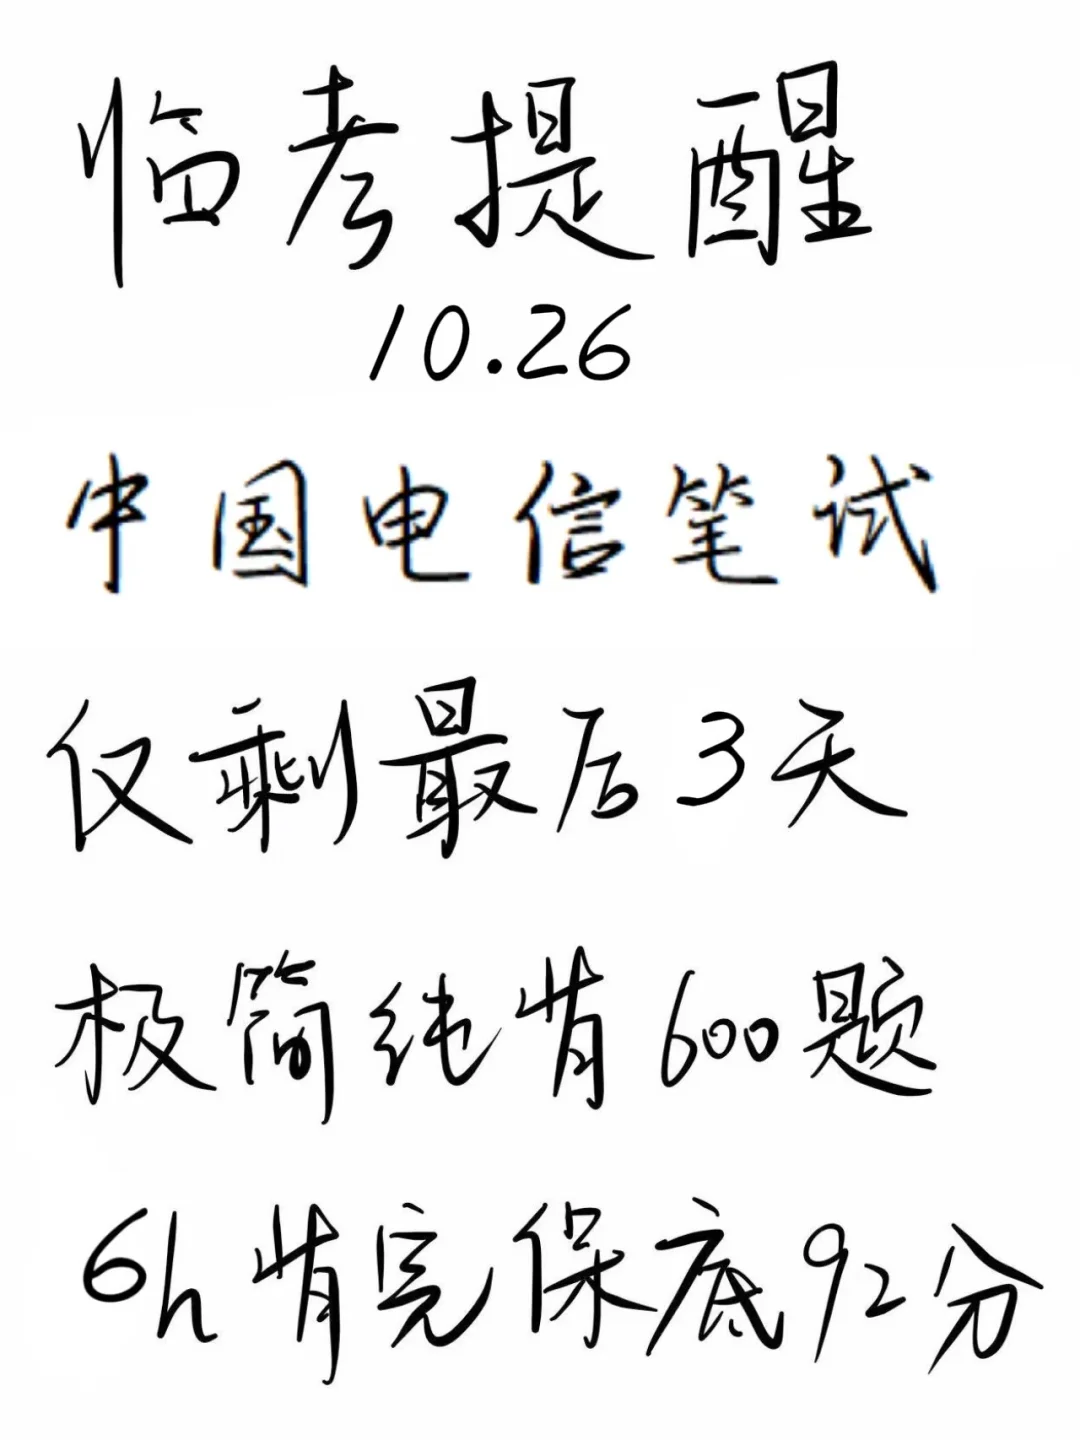 临考提醒
10.26
中国电信笔试
仅剩最后3天
极简纯背600题
6h背完保底92分